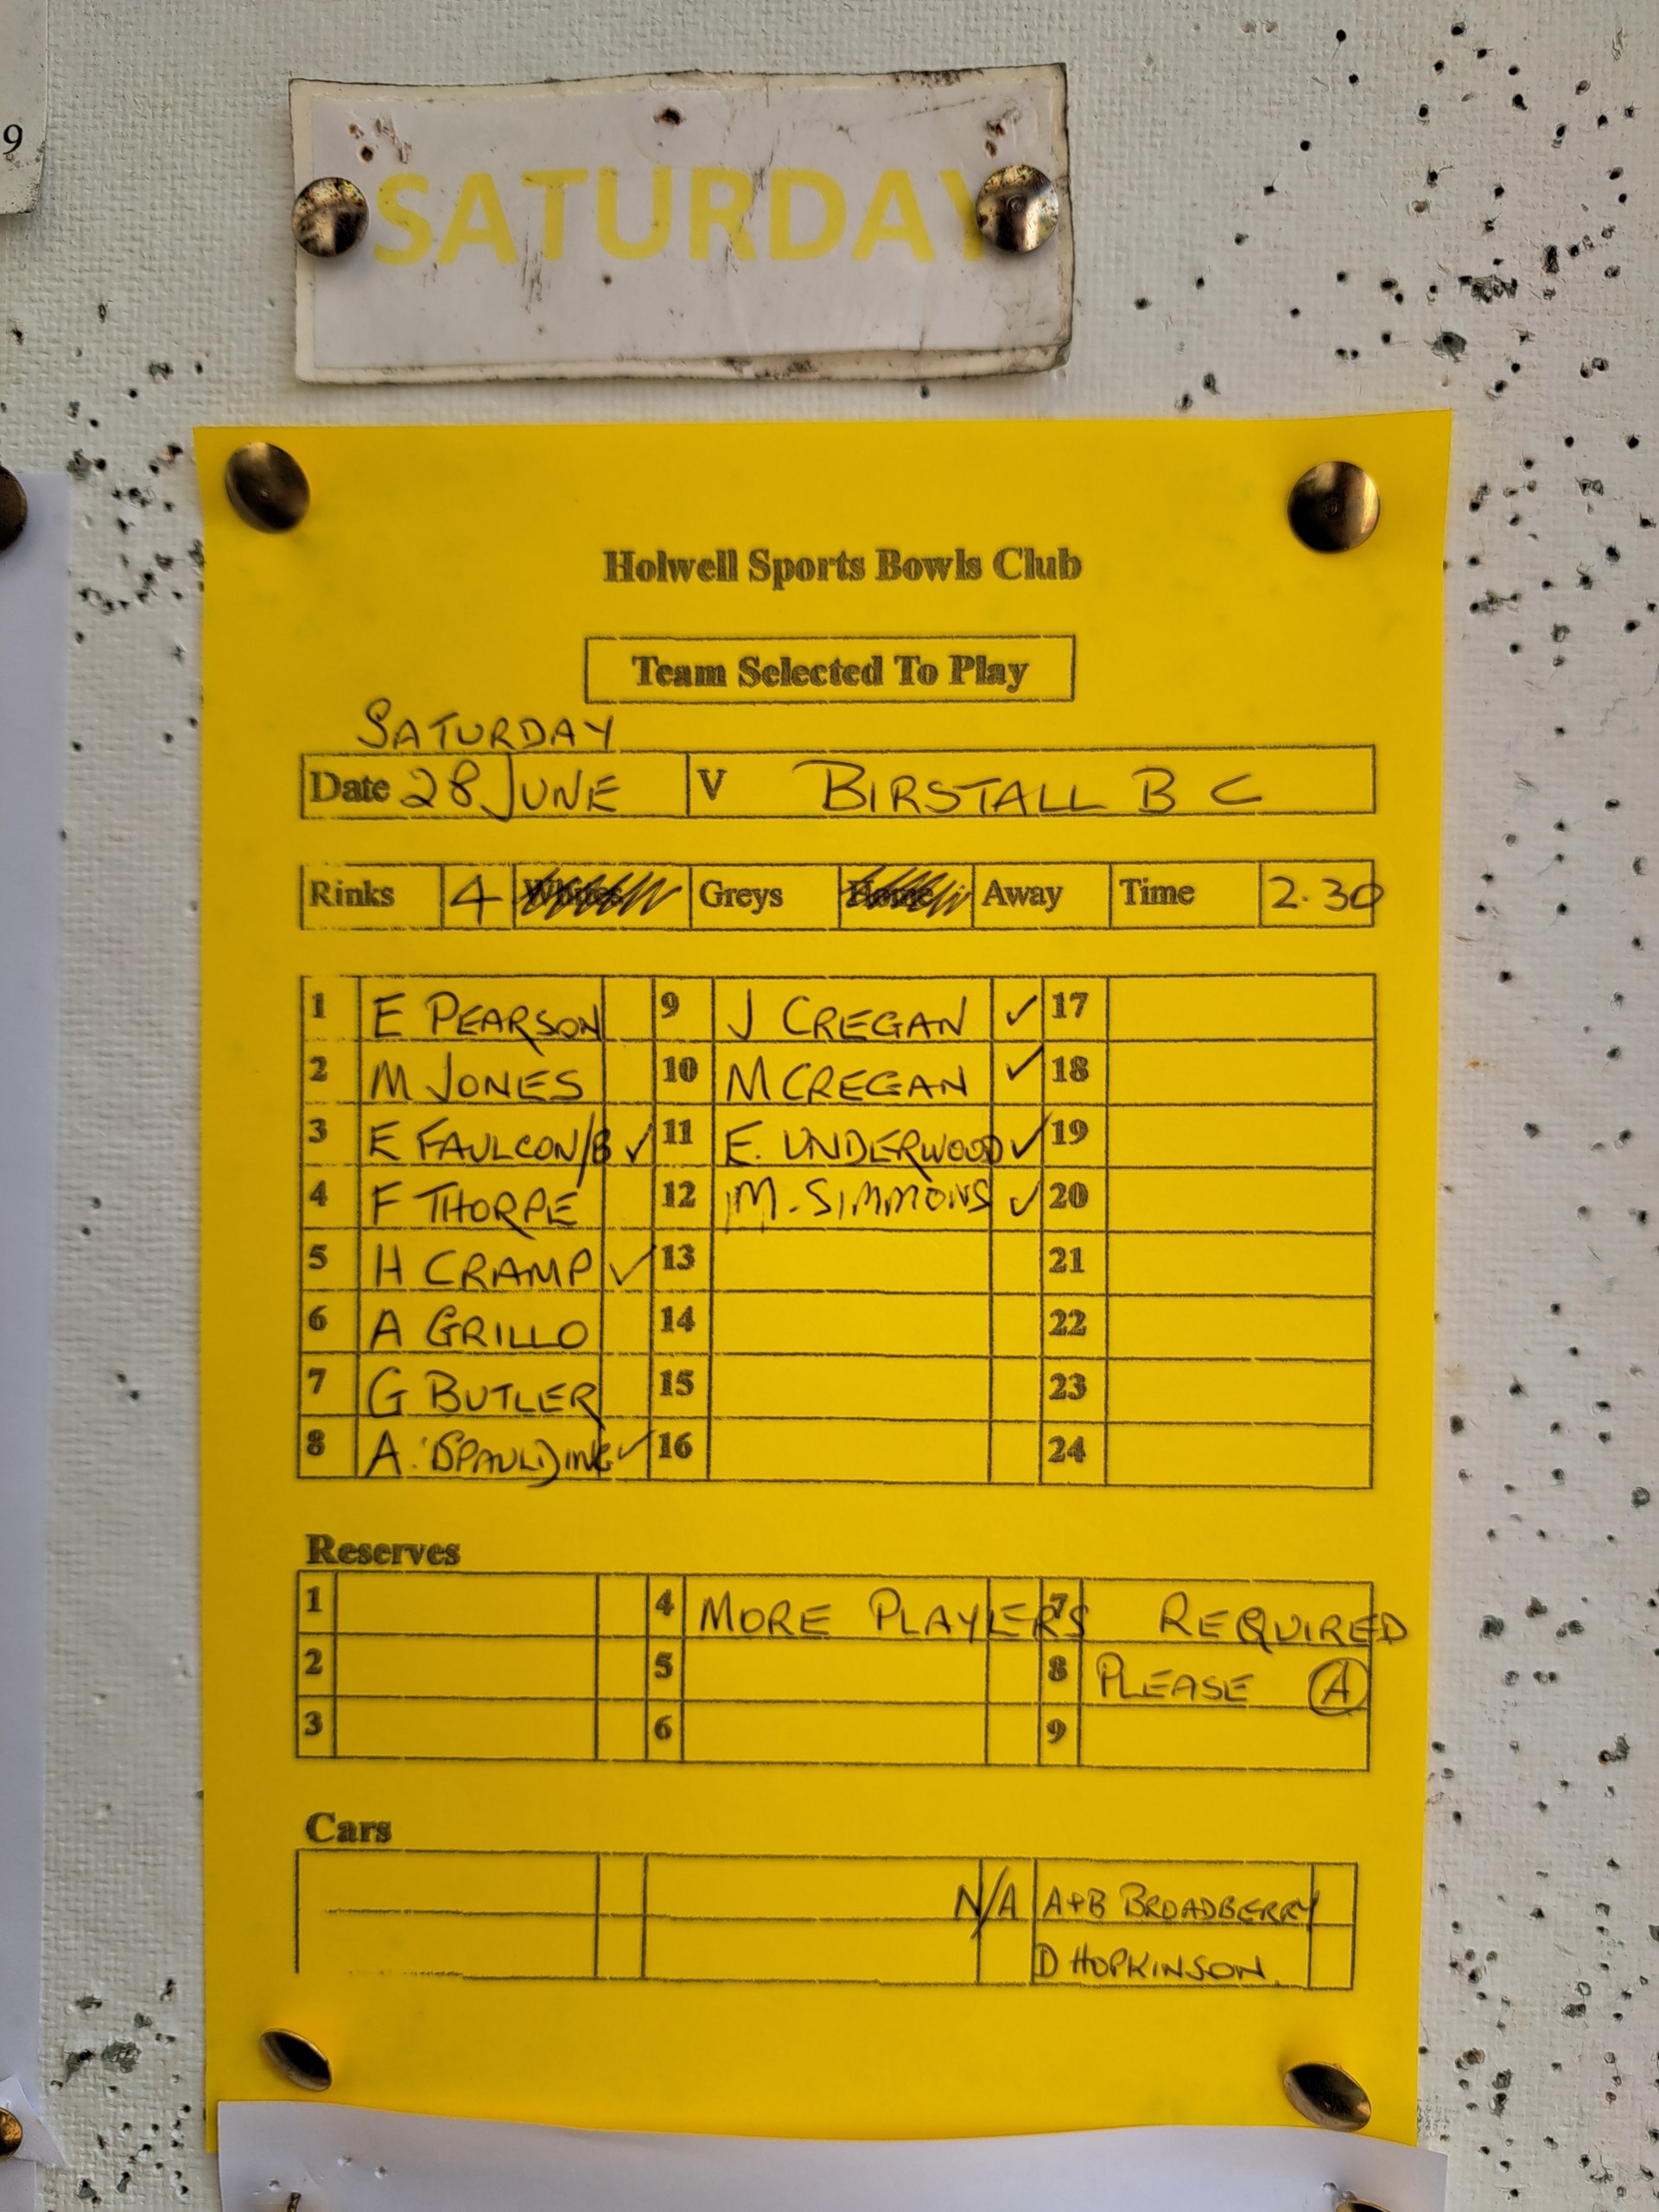 9
SATURDAY
Holwell Sports Bowls Club
Team Selected To Play
SATURDAY
Date 28 JUNE V BIRSTALL B C
Rinks 4 Whites Greys Home Away Time 2.30
1 E PEARSON 9 J CREGAN ✓ 17
2 M JONES 10 M CREGAN ✓ 18
3 E FAULCON/B ✓ 11 E. UNDERWOOD ✓ 19
4 F THORPE 12 M. SIMMONS ✓ 20
5 H CRAMP ✓ 13 21
6 A GRILLO 14 22
7 G BUTLER 15 23
8 A. SPAULDING ✓ 16 24
Reserves
1 4 MORE PLAYERS 7 REQUIRED
2 5 8 PLEASE A
3 6 9
Cars
N/A A+B BROADBERRY
D HOPKINSON